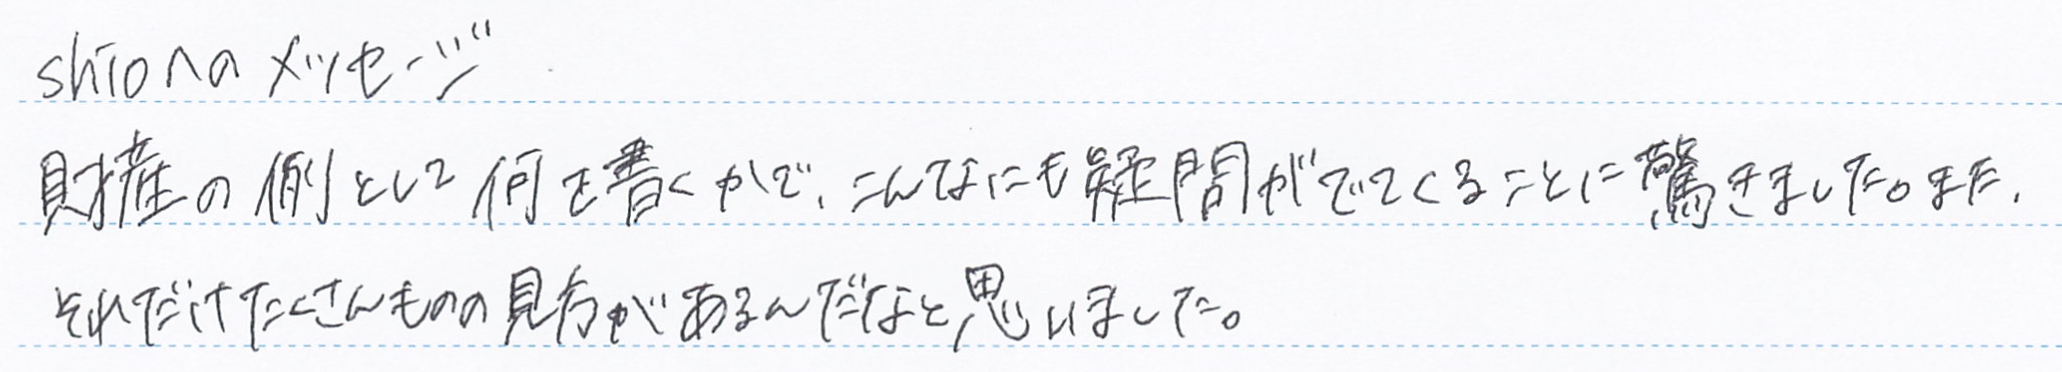 shioへのメッセージ
財産の例として何を書くかで、こんなにも疑問がでてくることに驚きました。また、
それだけたくさんものの見方があるんだなと思いました。